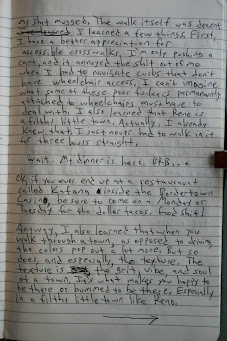 my shit mugged. The walk itself was decent
I learned a few things. First,
I have a better appreciation for
accessible crosswalks. I'm only pushing a
cart, and it annoyed the shit out of me
when I had to navigate curbs that don't
have wheelchair access. I can't imagine
what some of these poor folks permanently
attached to wheelchairs must have to
deal with. I also learned that Reno is
a filthy little town. Actually, I already
knew that, I just never had to walk in it
for three hours straight.
wait. My dinner is here. BRB...
OK, if you ever end up at a restaurant
called Katana inside the Bordertown
Casino, be sure to come on a Monday or
Tuesday for the dollar tacos. Good shit!
Anyway, I also learned that when you
walk through a town, as opposed to driving
the colors pop out a lot more, but so
does, and especially, the texture. The
texture is the grit, vibe, and soul
of a town. It's what makes you happy to
be there or bummed to be there. Especially
in a filthy little town like Reno.